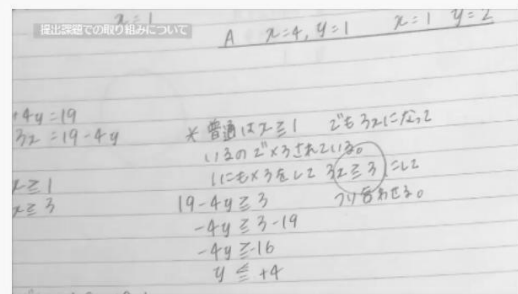 x=1
提出課題での取り組みについて
A x=4, y=1 x=1 y=2
+4y=19
3x=19-4y
x≧1
x≧3
*普通はx≧1 でも3xになって
いるので×3されている。
1にも×3をして 3x≧3にして
つり合わせる。
19-4y≧3
-4y≧3-19
-4y≧-16
y≦+4